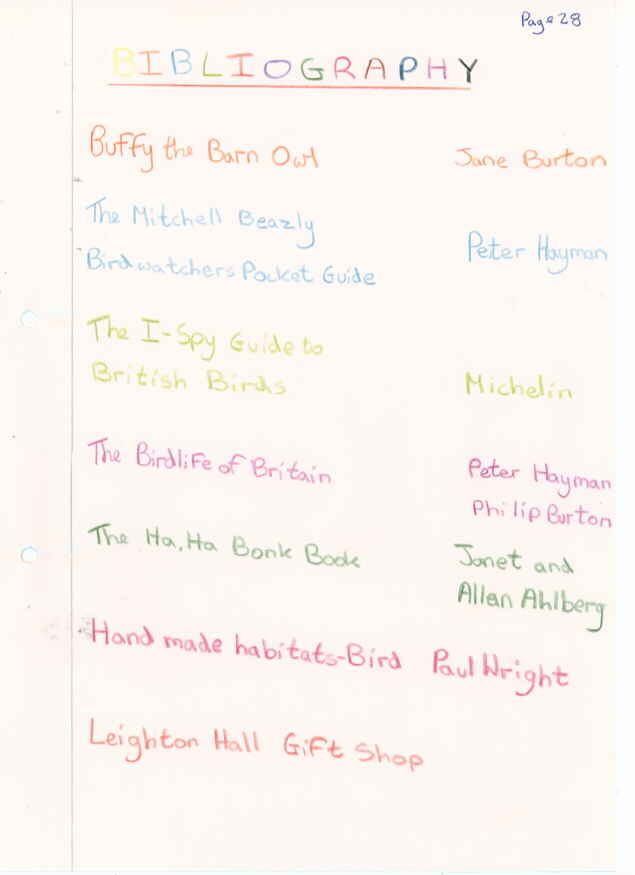 Page 28
BIBLIOGRAPHY
Buffy the Barn Owl Jane Burton
The Mitchell Beazly
Birdwatchers Pocket Guide Peter Hayman
The I-Spy Guide to
British Birds Michelin
The Birdlife of Britain Peter Hayman
Philip Burton
The Ha, Ha Bonk Book Janet and
Allan Ahlberg
Hand made habitats-Bird Paul Wright
Leighton Hall Gift Shop